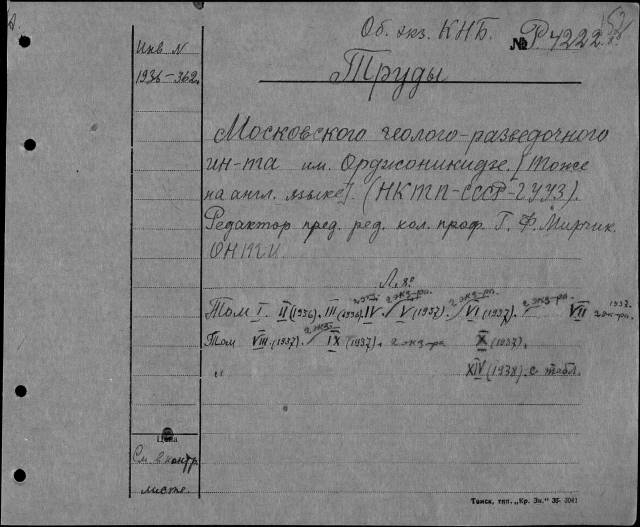 Об. экз. КНБ. № Р4222
Инв N
1936-362.
Труды
Московского геолого-разведочного
ин-та им. Орджоникидзе. [Тоже
на англ. языке]. (НКТП-СССР-ГУУЗ).
Редактор пред. ред. кол. проф. Г. Ф. Мирчик.
ОНТИ
Л. 8°
2 экз-ра. 2 экз-ра. 2 экз-ра. 1937.
Том I. II (1936). III (1936). IV. V (1937). VI (1937). VII 2 экз-ра.
2 экз.
Том VIII (1937). IX (1937). 2 экз-ра X (1937).
" XIV (1938). с табл.
Цена
См. в контр.
листе.
Томск, тип. „Кр. Зн." 35-3041